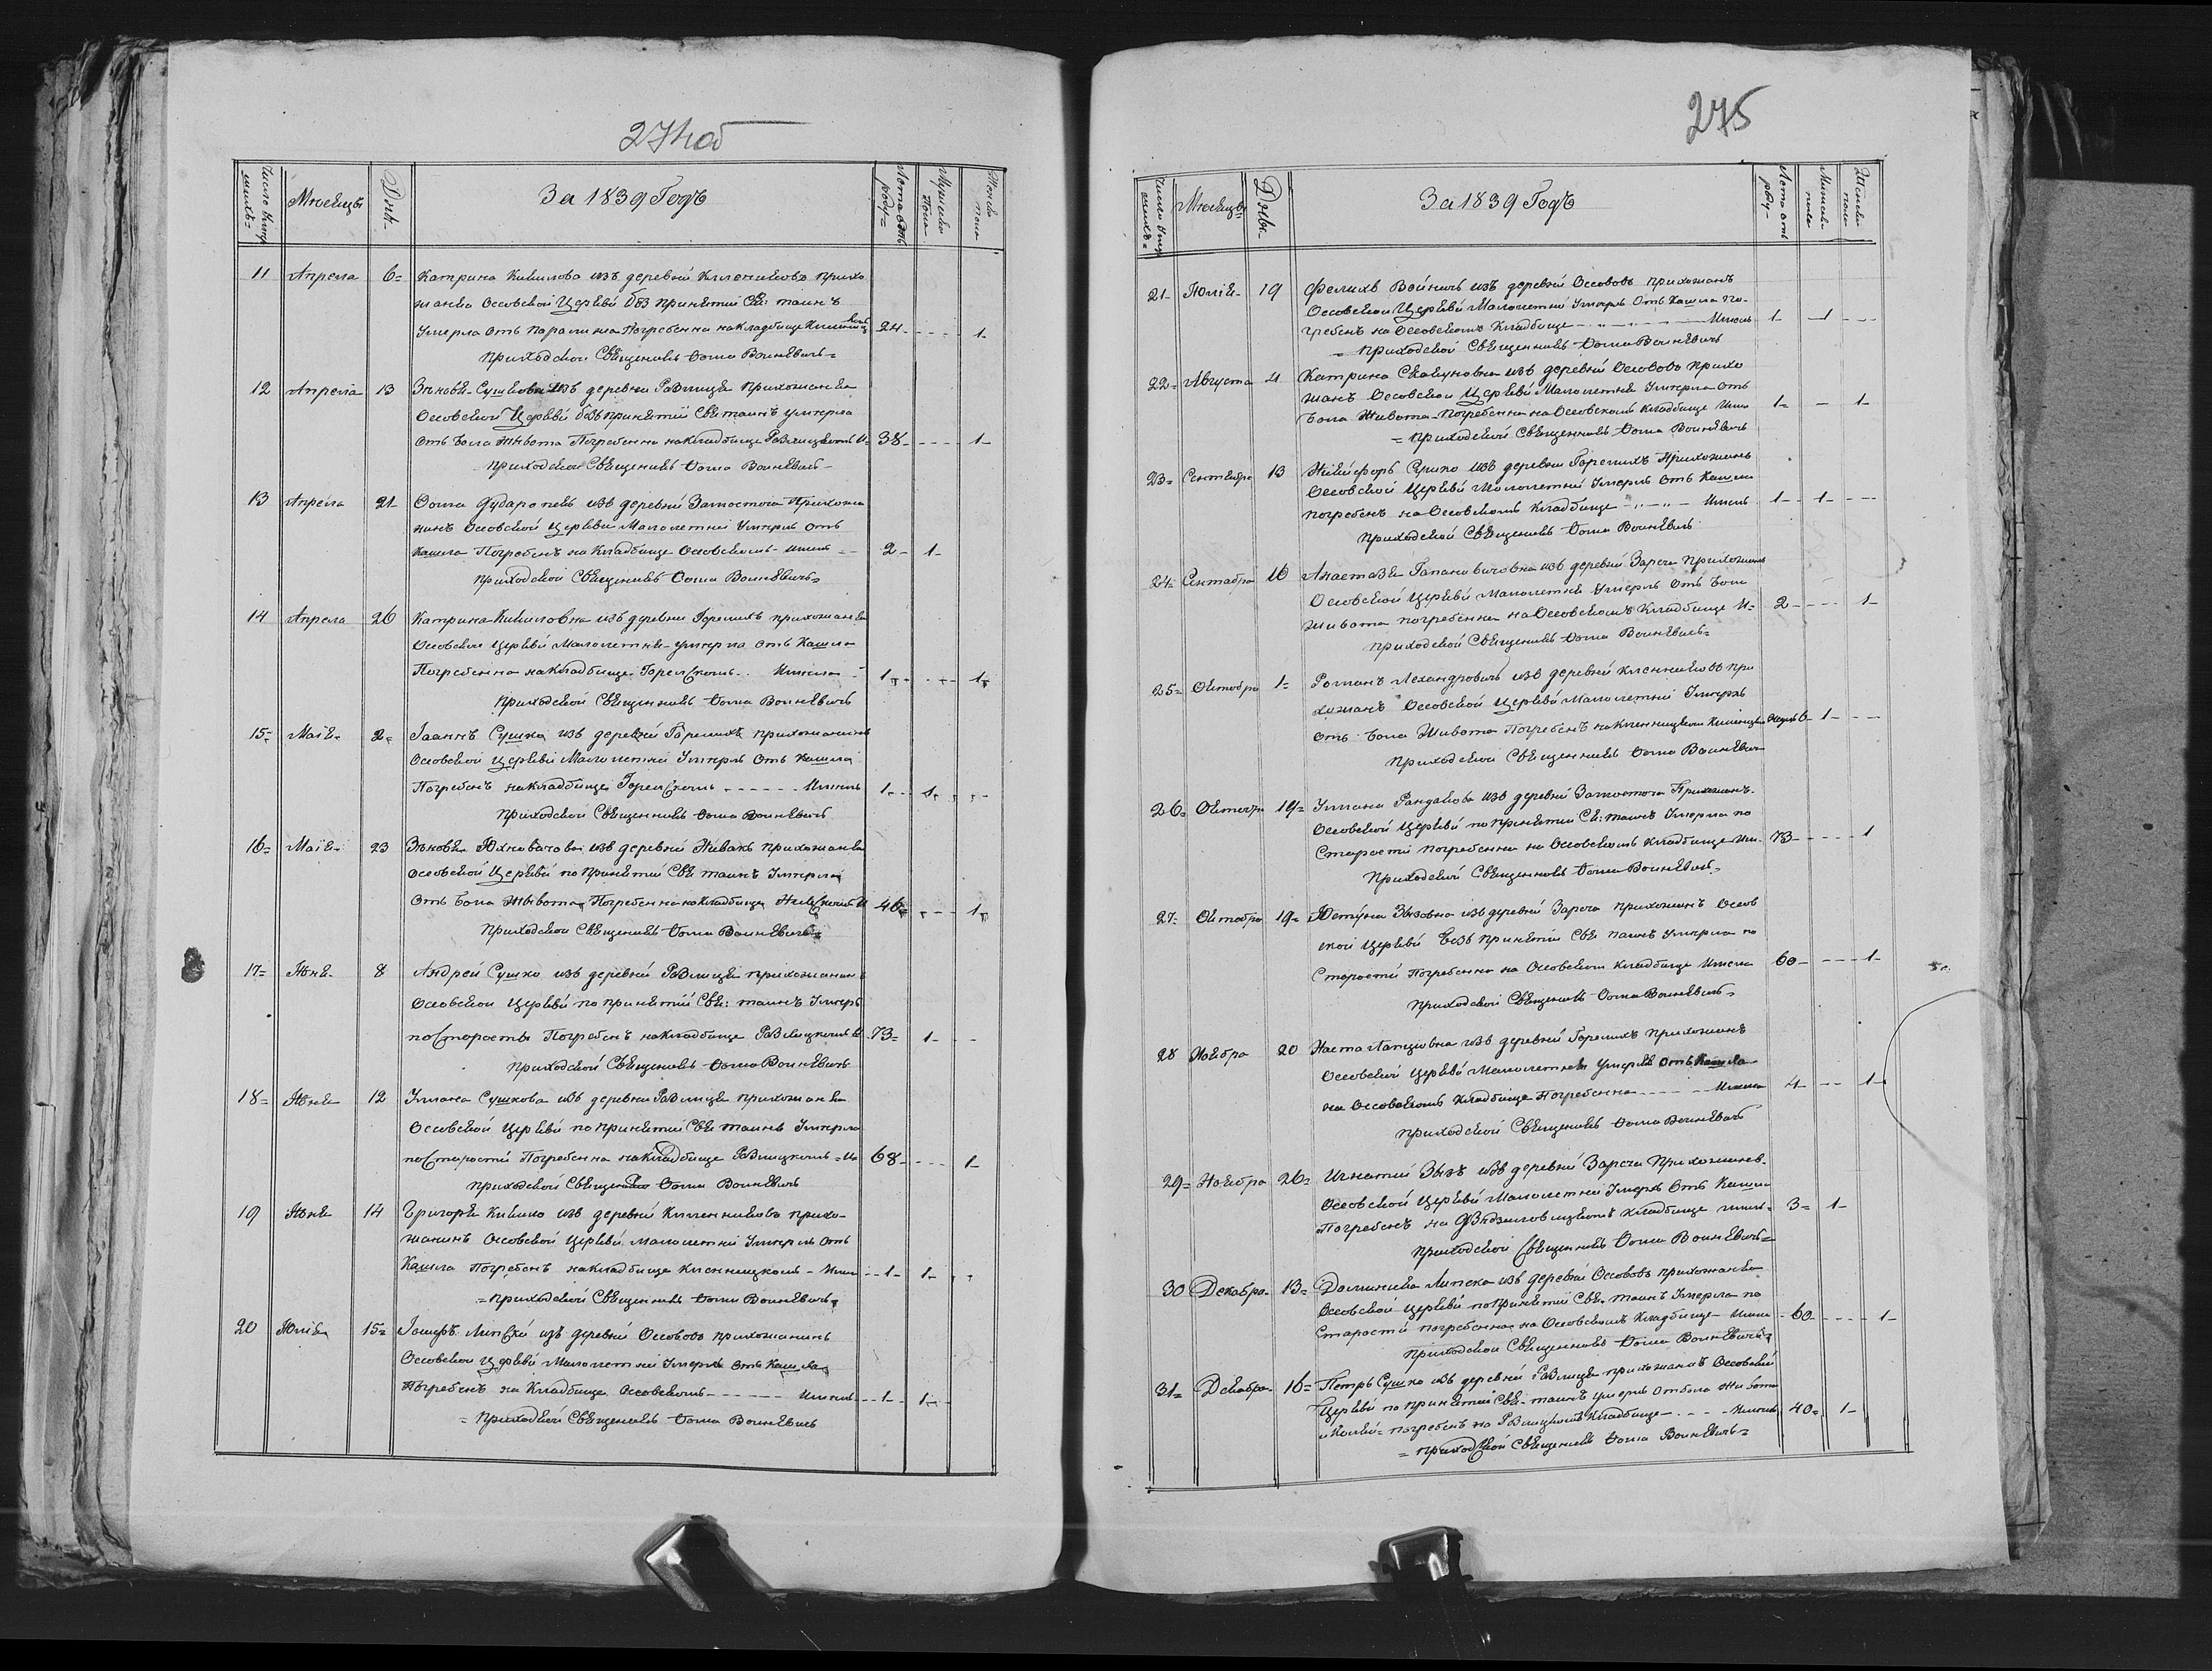 274 об
Число умер
шихъ =
Месецы
Дни
За 1839 Годъ
Лета отъ
роду =
Мужеска
Пола
Женска
пола
11 Апреля 6= Катрина Кишлова изъ деревни прихо
жанка Осовской Церкви без принятия Св: таинъ
Умерла отъ Погребенна на Кладбище 24 - 1
приходской Священникъ Фома Войневичъ=
12 Апреля 13 Зѣновья Сушкова изъ деревни Равлицкъ прихожанка
Осовской Церкви безъ принятия Свѣ таинъ умерла
отъ бола Живота Погребенна на кладбище Равлицкомъ И= 38 - 1
приходской Священникъ Фома Войневичъ
13 Апреля 21 Фома изъ деревни Замосточа Прихожа
нинъ Осовской церкви Малолетній Умерлъ отъ
Кашела Погребенъ на Кладбище Осовскомъ имелъ 2 - 1
приходской Священникъ Фома Войневичъ
14 Апреля 26 Катрина Кишловна изъ деревни Горелихъ прихожанка
Осовской церкви Малолетня умерла отъ Кашла
Погребенна на кладбище Горелскомъ Имела 1 - 1
приходской Священникъ Фома Войневичъ
15= Маія 2= Іоаннъ Сушка изъ деревни Горелихъ прихожанинъ
Осовской церкви Малолетній Умерлъ отъ Кашла
Погребенъ на кладбище Горелскомъ Имелъ 1 - 1
приходской Священникъ Фома Войневичъ
16= Маія 23 Зѣновья изъ деревни Нивахъ прихожанка
Осовской Церкви по принятии Свѣ таинъ Умерла
отъ бола Живота Погребенна на кладбище И 46 - 1
приходской Священникъ Фома Войневичъ
17= Июня 8 Андрей Сушко изъ деревни Равлицкъ прихожанинъ
Осовской церкви по принятии Свѣ: таинъ Умеръ
по Старости Погребенъ на кладбище Равлицкомъ И 73= 1
приходской Священникъ Фома Войневичъ
18= Июня 12 Ульяна Сушкова изъ деревни Равлицкъ прихожанка
Осовской церкви по принятии Свѣ таинъ Умерла
по Старости Погребенна на Кладбище Равлицкомъ = И 68 - 1
приходской Священникъ Фома Войневичъ
19 Июня 14 Григорій Кишко изъ деревни прихо-
жанинъ Осовской церкви Малолетній Умерлъ отъ
Кашла Погребенъ на кладбище Кленницкомъ - Име 1 - 1
= приходской Священникъ Фома Войневичъ
20 Юлія 15= Іосифъ Липскій изъ деревни Осововъ прихожанинъ
Осовской церкви Малолетній Умерлъ отъ Кашла
Погребенъ на Кладбище Осовскомъ Имелъ 1 - 1
= приходской Священникъ Фома Войневичъ
275
Число умер
шихъ =
Месецы
Дни
За 1839 Годъ
Лета отъ
роду
Мужеск
пола
Женска
пола
21 Юлія 19 Феликъ Войничъ изъ деревни Осововъ прихожанъ
Осовской Церкви Малолетній Умерлъ отъ Кашла По-
гребенъ на Осовскомъ Кладбище Имелъ 1 - 1
= приходской Священникъ Фома Войневичъ
22= Августа 4 Катрина изъ деревни Осововъ прихо
жанъ Осовской Церкви Малолетня Умерла отъ
бола Живота Погребенна на Осовскомъ кладбище Име 1= - 1
= приходской Священникъ Фома Войневичъ
23= Сентября 13 Никифоръ Сушко изъ деревни Горелихъ Прихожанъ
Осовской церкви Малолетній Умерлъ отъ Кашла
погребенъ на Осовскомъ кладбище Имелъ 1 - 1
приходской Священникъ Фома Войневичъ
24= Сентабра 16 Анастазія Гапановичовна изъ деревни Зареча прихожанъ
Осовской церкви Малолетня Умерлъ отъ бола
Живота погребенна на Осовскомъ Кладбище И= 2 - 1
приходской Священникъ Фома Войневичъ=
25= Октобра 1= Романъ Лехандровичъ изъ деревни при
хожанъ Осовской Церкви Малолетній Умерлъ
отъ бола Живота Погребенъ на Имелъ 6 - 1
приходской Священникъ Фома Войневич
26= Октобра 14= Ульяна изъ деревни Замосточа Прихожанъ
Осовской церкви по принятии Св: таинъ Умерла по
Старости погребенна на Осовскомъ кладбище Им 73 - 1
Приходской Священникъ Фома Войневич=
27= Октобра 19= Юстына Зызовна изъ деревни Зареча прихожанъ Осов
ской церкви безъ принятия Свѣ таинъ Умерла по
Старости Погребенна на Осовскомъ кладбище Имела 60 - 1
приходской Священникъ Фома Войневичъ
28 Ноября 20 Наста изъ деревни Горелихъ прихожанъ
Осовской церкви Малолетня умерла отъ Кашла
на Осовскомъ кладбище Погребенна Имела 4 - 1
приходской Священникъ Фома Войневичъ
29= Ноября 26= Игнатій Зызъ изъ деревни Заречи Прихожанъ
Осовской Церкви Малолетній Умерлъ отъ Кашла
Погребенъ на кладбище имелъ 3= 1
приходской Священникъ Фома Войневичъ=
30 Декабра 13= Доминика Липска изъ деревни Осововъ прихожанка
Осовской церкви по принятии Свѣ. таинъ Умерла по
Старости погребенна на Осовскомъ Кладбище Имела 60 - 1
приходской Священникъ Фома Войневичъ
31= Декабра 16= Петръ Сушко изъ деревни Равлицкъ прихожанъ Осовской
Церкви по принятии Свѣ. таинъ умерлъ от бола Живота
погребенъ на Равлицкомъ Кладбище Имелъ 40= 1
= приходской Священникъ Фома Войневичъ=